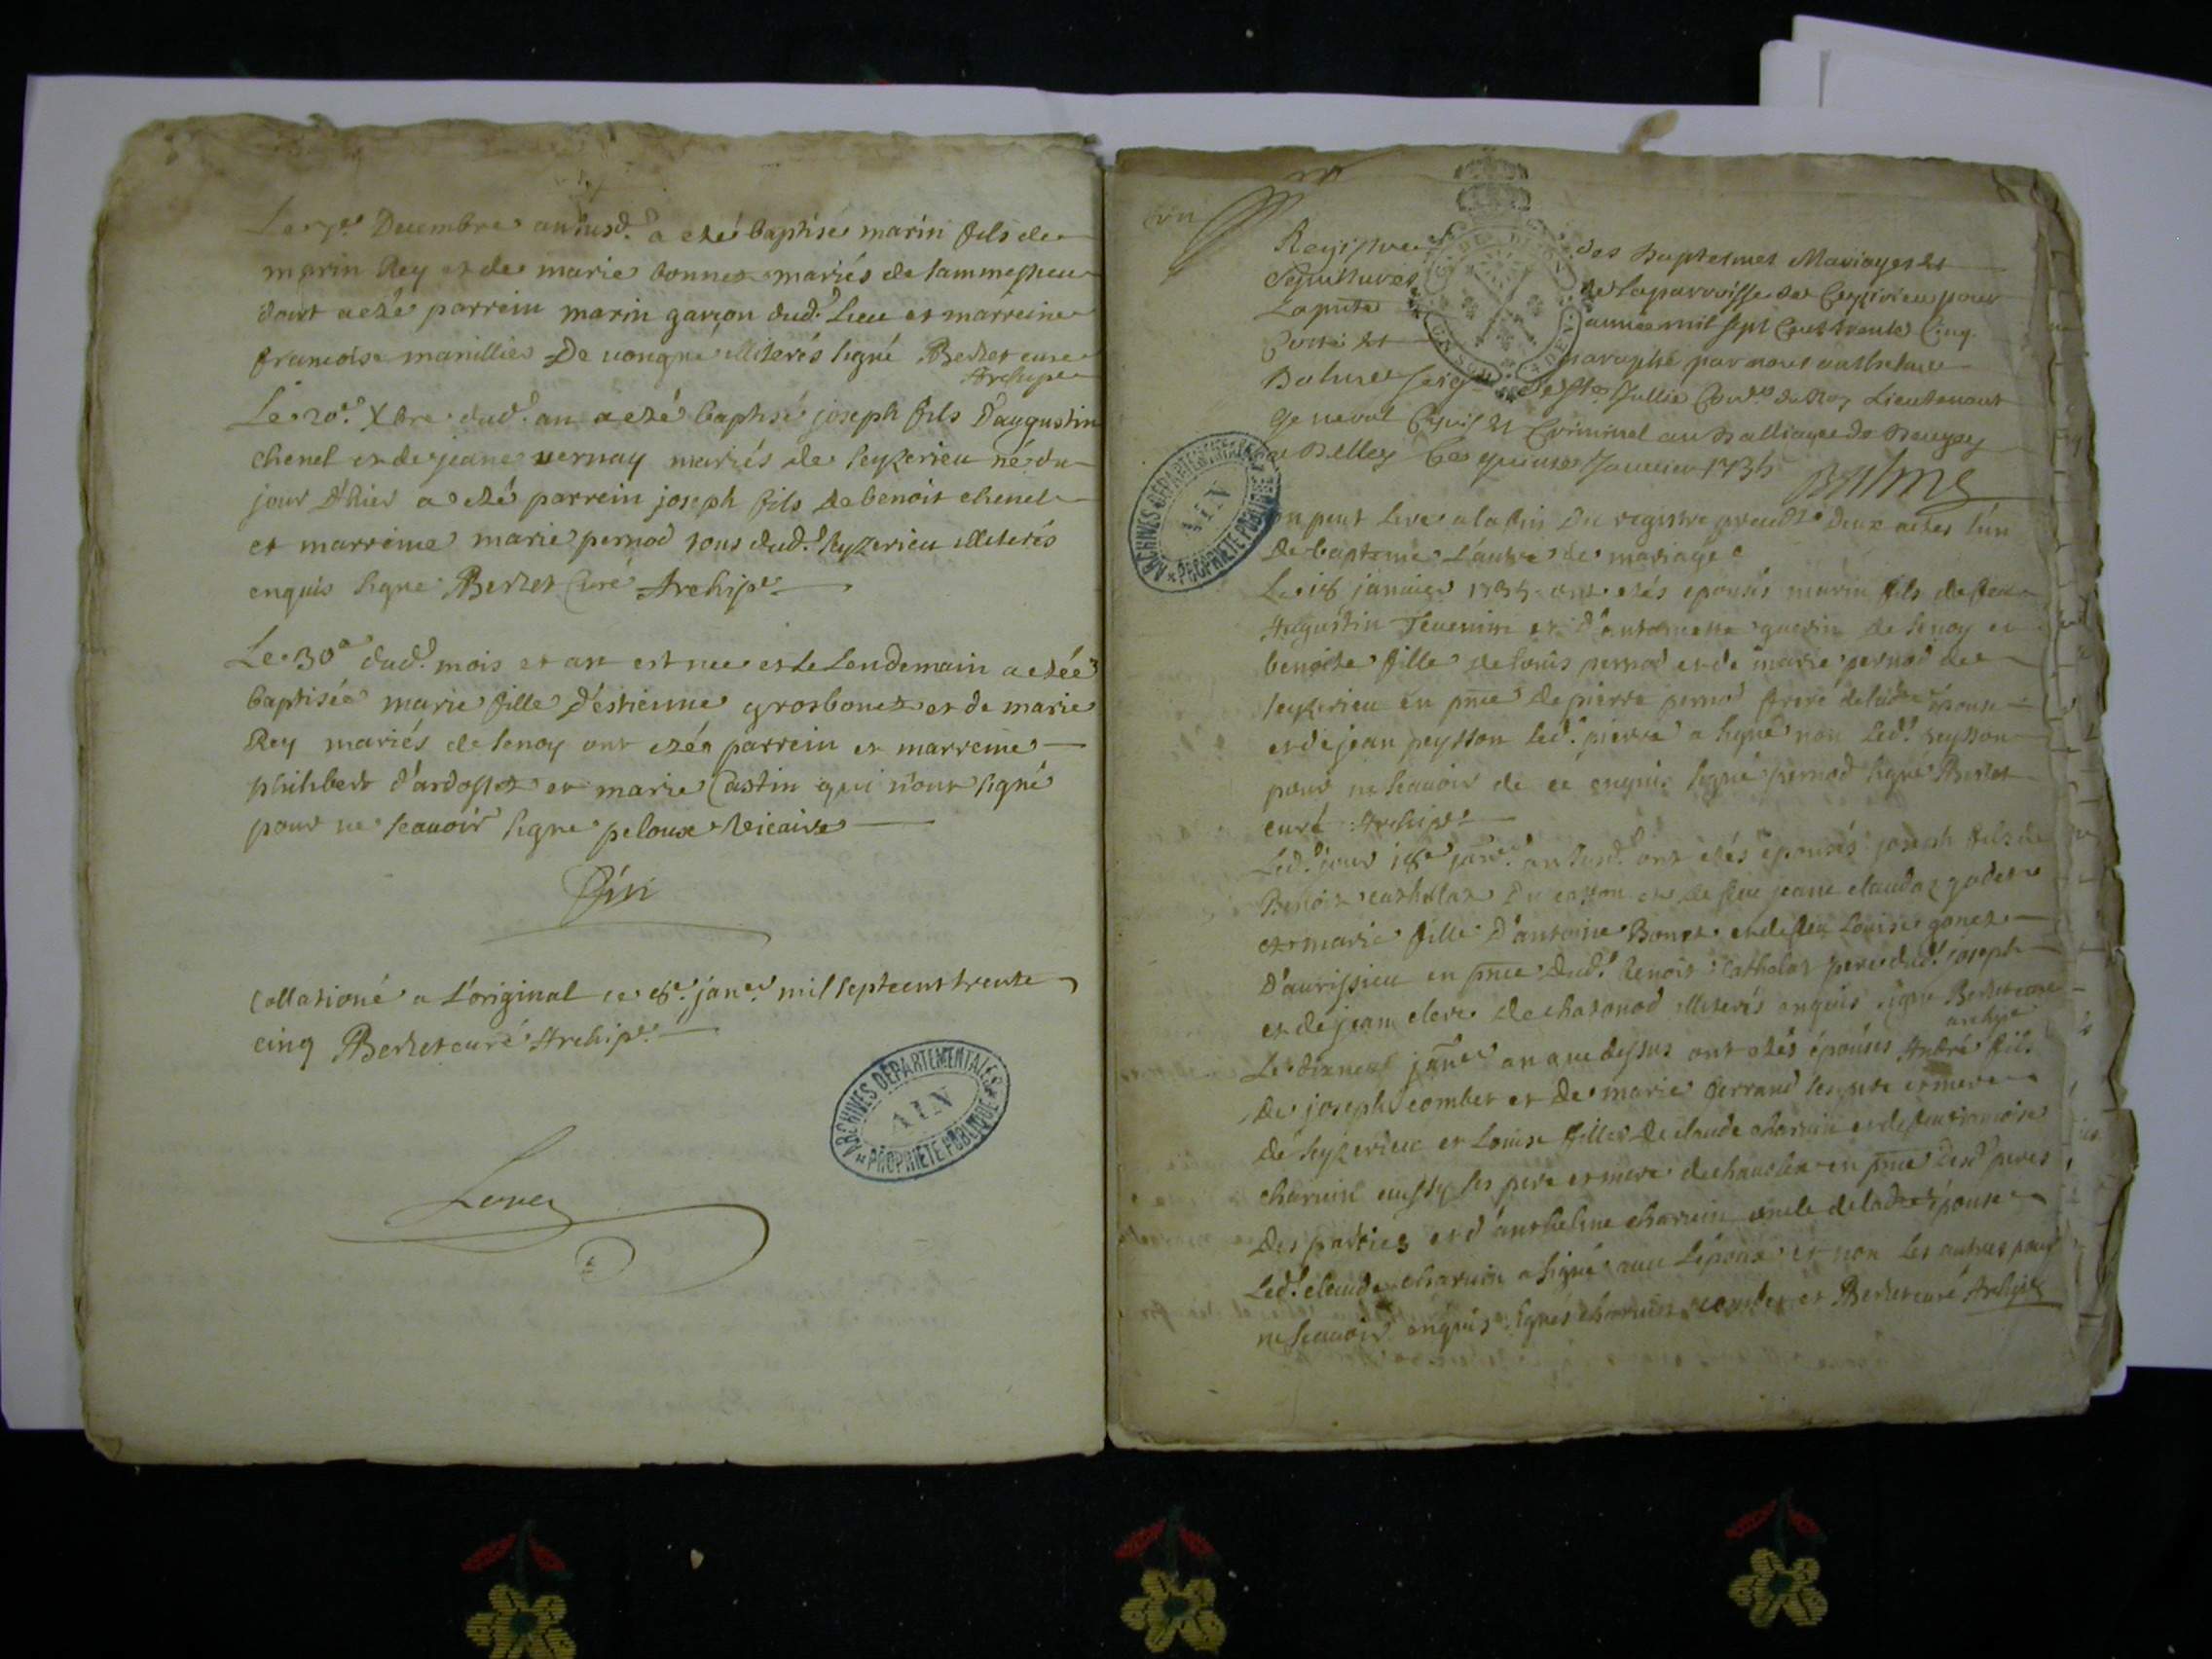 Le 7e. Decembre an susd. a eté baptisé marin fils de
marin Rey et de marie bonnet mariés de
dont a eté parrein marin garçon dud. Lieu et marreine
francoise manillier De uongne illiterés signé Berlet curé
Archipr
Le 20e. Xbre dud. an a eté baptisé joseph fils d'augustin
chenel et de jeane vernay mariés de seyzerieu né du
jour d'hier a eté parrein joseph fils de benoit chenel
et marreine marie pernod tous dud. seyzerieu illiterés
enquis signé Berlet Curé Archipr
Le 30e dud. mois et an est nee et le Lendemain a etée
baptisée marie fille d'estienne grosbonet et de marie
Rey mariés de senoy ont etés parrein et marreine
philibert d'ardosset et marie Castin qui n'ont signé
pour ne sçauoir signé peloux vicaire
Fin
Collationé a L'original ce 8e. janer. mil sept cent trente
cinq Berlet curé Archipr
ARCHIVES DÉPARTEMENTALES
AIN
PROPRIÉTÉ PUBLIQUE
Registre des Baptesmes Mariages et
Sepultures de La parroisse de Ceyzirieu pour
La pnte année mil sept Cent trente Cinq
Cotté et paraphé par nous anthelme
Balme Seigr de Ste Jullie Conser du Roy Lieutenant
General Civil et Criminel au Balliage de Beugey
a Belley Ce quinze Januier 1735 Balme
ARCHIVES DÉPARTEMENTALES
AIN
PROPRIÉTÉ PUBLIQUE
on peut Lire a la fin Du registre precedt deux actes l'un
de bapteme L'autre de mariage
Le 18 januier 1735 ont etés epousés marin fils de feu
Augustin Teuenin et d'antoinette guerin de senoy et
benoite fille de louis pernod et de marie pernod de
seyzerieu en pnce de pierre pernod frere de ladte epouse
et de jean peysson led. pierre a signé non Led. peysson
pour ne sçauoir de ce enquis signé pernod signé Berlet
curé Archipr
Led. jour 18e janer. an susd. ont etés epousés joseph fils de
Benoit cathelat et de feue jeane claudaz godet
et marie fille d'antoine Bonet et de feu Louise gonet
d'aurissieu en pnce dud. benoit Cathelat pere dud. joseph
et de jean clerc de chatonod illiterés enquis signé Berlet curé
archipr
Le dixneuf janer an que dessus ont etés épousés André fils
de joseph combet et de marie ferrand ses pere et mere
de seyzerieu et Louise fille de claude charuin et de francoise
charuin aussy ses pere et mere de en pnce desd. peres
des parties et d'anthelme charuin oncle de ladte epouse
Led. claude charuin a signé auec L'époux et non les autres pour
ne sçauoir enquis. signés charuin combet et Berlet curé Archipr